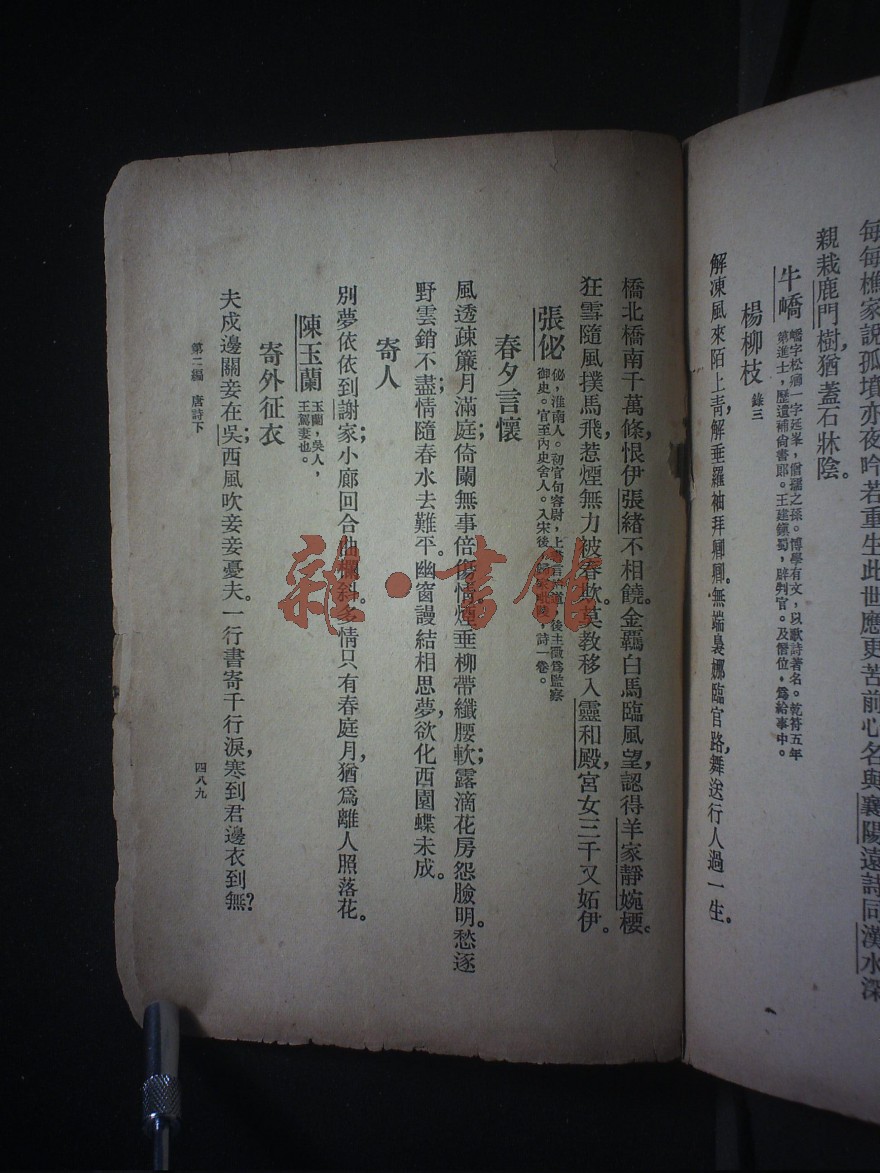 每每樵家說孤墳亦夜吟若重生此世應更苦前心名與襄陽遠詩同漢水深
親栽鹿門樹，猶蓋石牀陰。
牛嶠
嶠字松卿一字延峯，僧孺之孫。博學有文，以歌詩著名。乾符五年
第進士，歷遺補尙書郎。王建鎭蜀，辟判官。及僭位，爲給事中。
楊柳枝 錄三
解凍風來陌上靑，解垂羅袖拜卿卿。無端裊娜臨官路，舞送行人過一生。
橋北橋南千萬條，恨伊張緖不相饒。金羈白馬臨風望，認得羊家靜婉腰。
狂雪隨風撲馬飛，惹煙無力被春欺。莫教移入靈和殿，宮女三千又妬伊。
張佖
佖，淮南人。初官句容尉，上書言治道，後主徵爲監察
御史。官至內史舍人。入宋後，歸家毗陵，詩一卷。
春夕言懷
風透疎簾月滿庭，倚闌無事倍傷情。煙垂柳帶纖腰軟；露滴花房怨臉明。愁逐
野雲銷不盡；情隨春水去難平。幽窗謾結相思夢，欲化西園蝶未成。
寄人
別夢依依到謝家；小廊回合曲欄斜。多情只有春庭月，猶爲離人照落花。
陳玉蘭
玉蘭，吳人，
王駕妻也。
寄外征衣
夫戍邊關妾在吳；西風吹妾妾憂夫。一行書寄千行淚，寒到君邊衣到無？
第二編 唐詩下
四八九
雜·書館